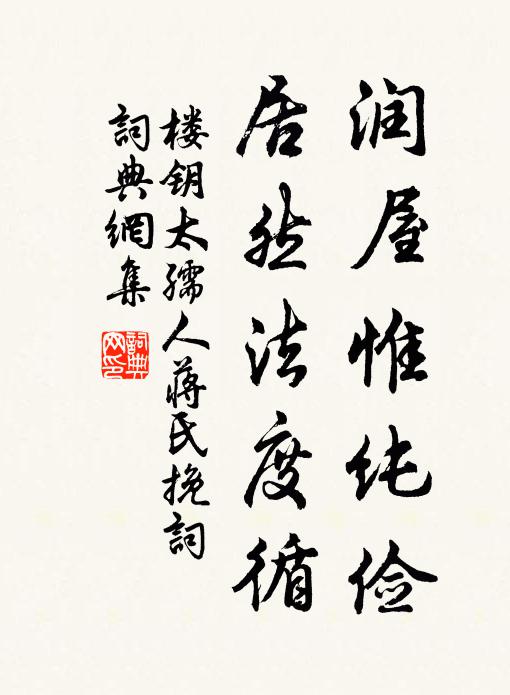 润屋惟纯俭
居然法度循
楼钥太孺人蒋氏挽詞
詞典網集
詞典网印